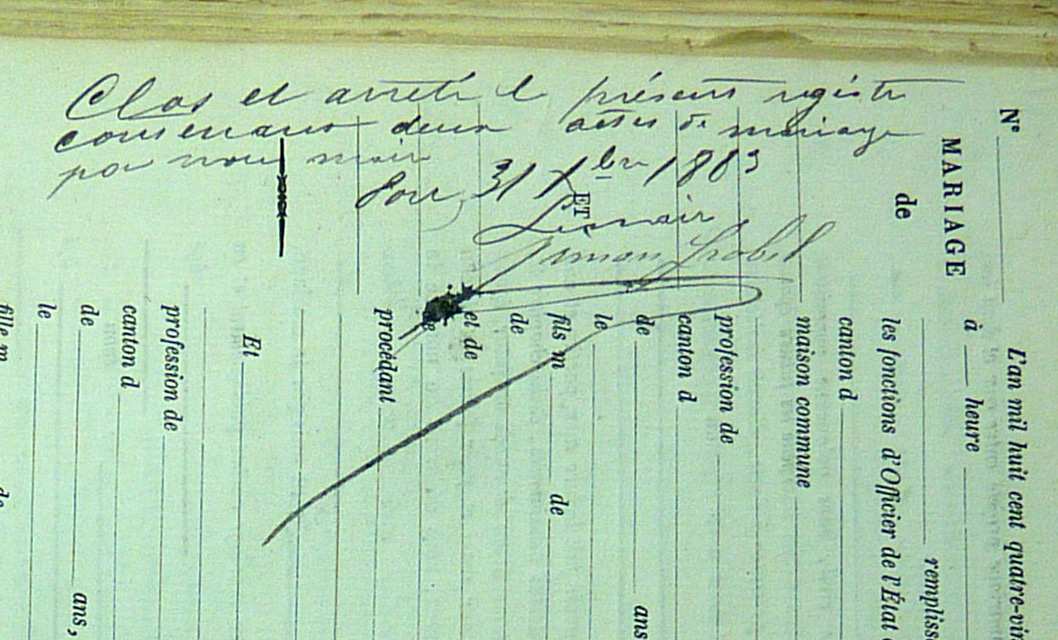 Clos et arrêté le présent registre
contenant deux actes de mariage
par nous maire
31 Xbre 1883
Le maire
N°
MARIAGE
de
ET
L'an mil huit cent quatre-vi
à heure
remplis
les fonctions d'Officier de l'État
canton d
maison commune
profession de
canton d
de ans
le
fils m de
de
et de
procédant
Et
profession de
canton d
de ans,
le
fille m de